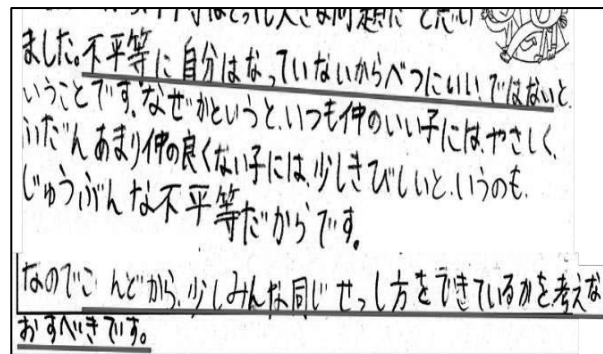 大きな問題だと思い
ました。不平等に自分はなっていないからべつにいい、ではないと
いうことです。なぜかというと、いつも仲のいい子には、やさしく、
ふだんあまり仲の良くない子には、少しきびしいと、いうのも、
じゅうぶんな不平等だからです。
なのでこんどから、少しみんな同じせっし方をできているかを考えな
おすべきです。